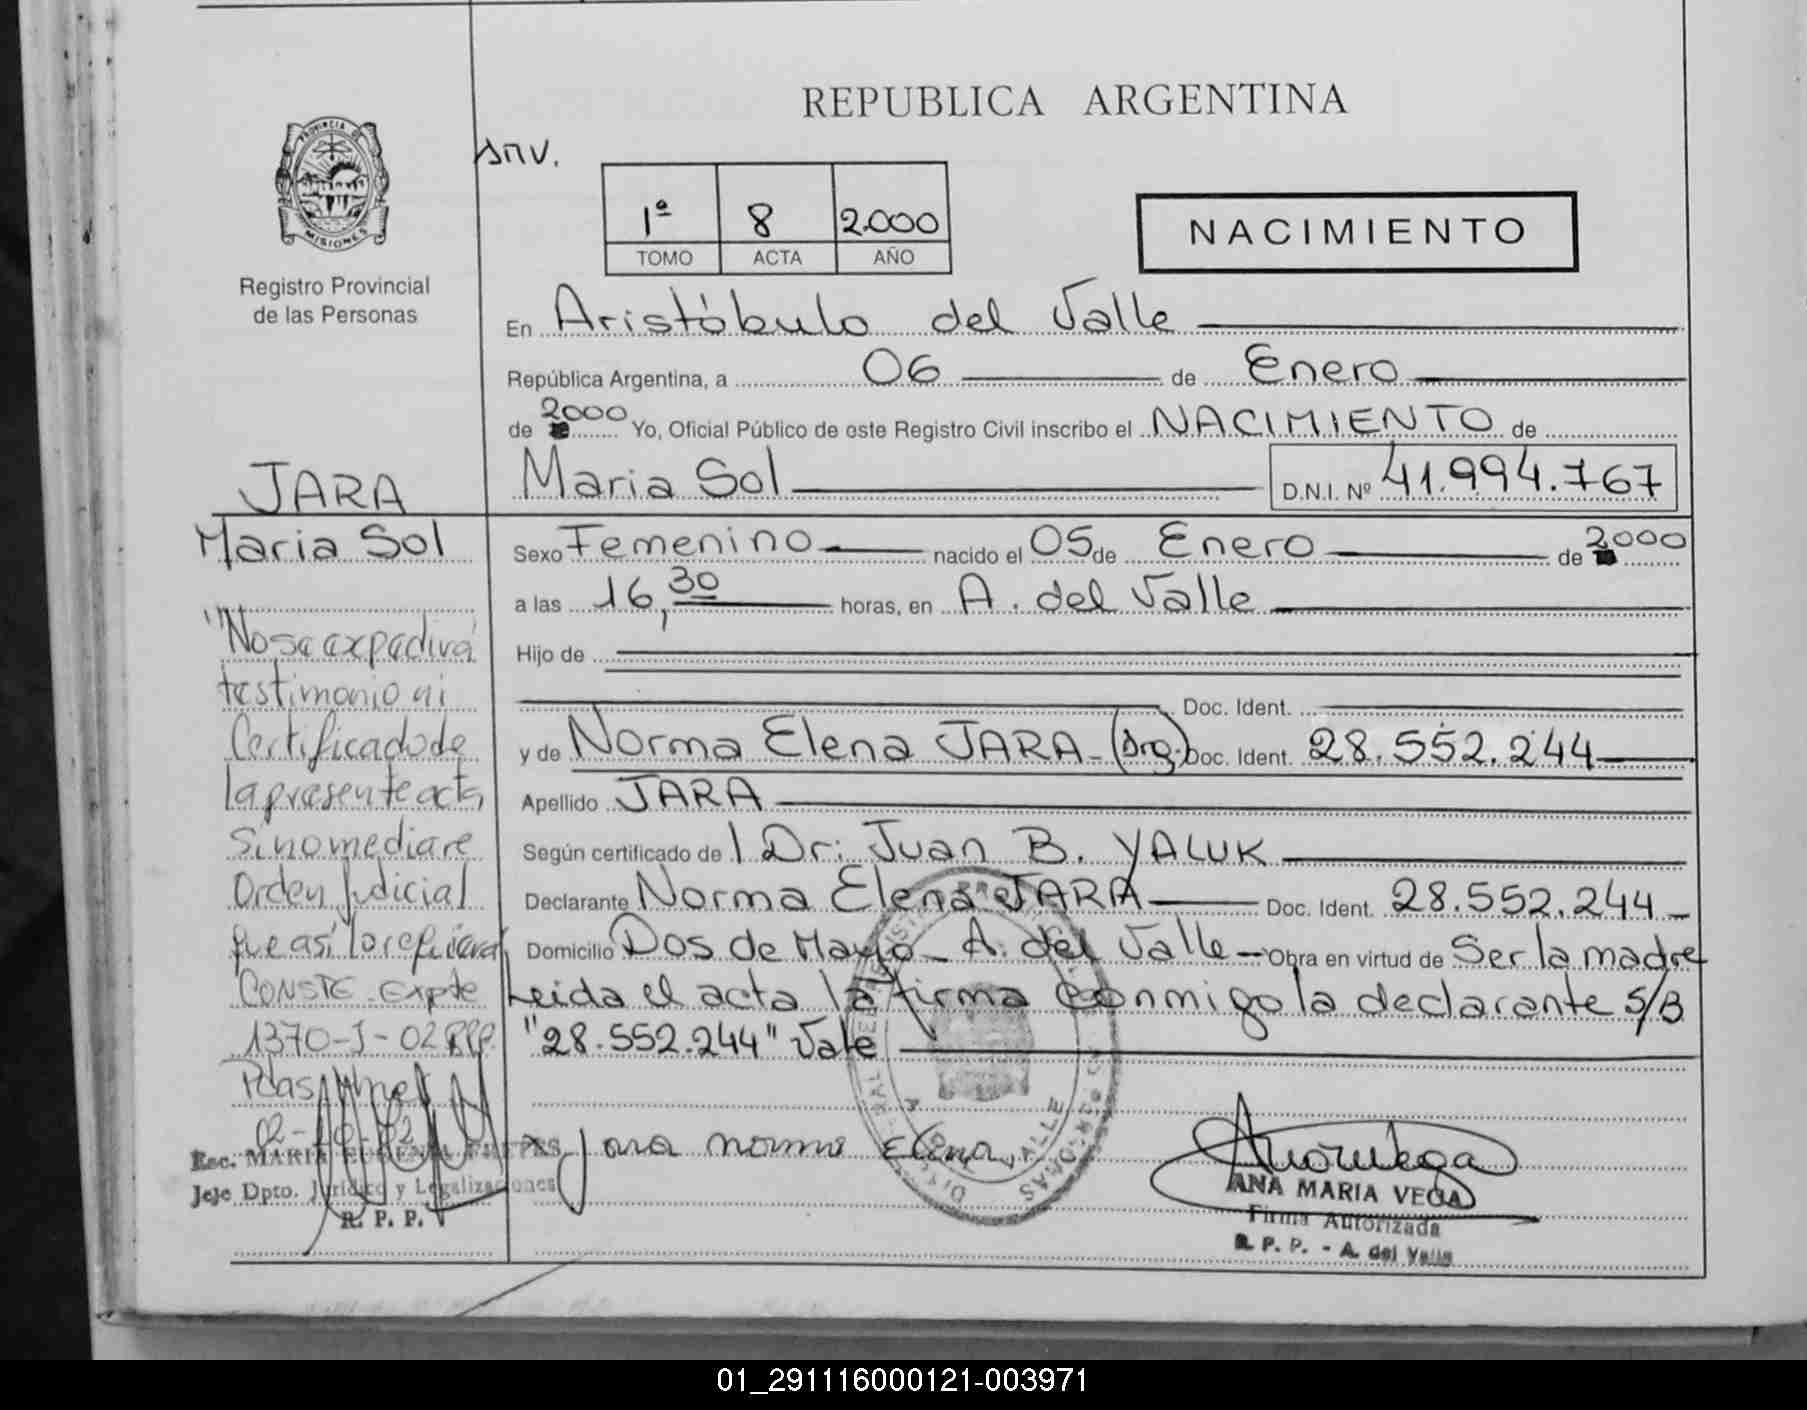 REPUBLICA ARGENTINA
PROVINCIA DE
MISIONES
Registro Provincial
de las Personas
1ª 8 2.000
TOMO ACTA AÑO
NACIMIENTO
En Aristóbulo del Valle
República Argentina, a 06 de Enero
de 2000 Yo, Oficial Público de este Registro Civil inscribo el NACIMIENTO de
Maria Sol D.N.I. Nº 41.994.767
Sexo Femenino nacido el 05 de Enero de 2000
a las 16,30 horas, en A. del Valle
Hijo de
Doc. Ident.
y de Norma Elena JARA - (Arg.) Doc. Ident. 28.552.244
Apellido JARA
Según certificado de 1 Dr: Juan B. YALUK
Declarante Norma Elena JARA Doc. Ident. 28.552.244
Domicilio Dos de Mayo - A. del Valle - Obra en virtud de Ser la madre
Leida el acta la firma conmigo la declarante S/B
"28.552.244" Vale
Jara norma Elena
ANA MARIA VEGA
Firma Autorizada
R. P. P. - A. del Valle
JARA
Maria Sol
"No se expedirá
testimonio ni
Certificado de
la presente acta,
si no mediare
Orden Judicial
que así lo requiera
CONSTE - Expte
1370-J-02 RPP.
Esc. MARIA EUGENIA
Jefe Dpto. Jurídico y Legalizaciones
R. P. P.
01_291116000121-003971